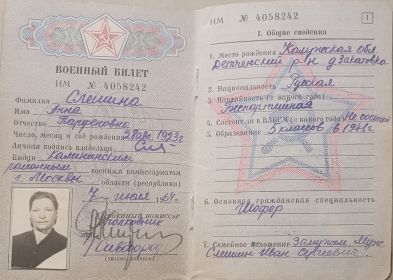 ВОЕННЫЙ БИЛЕТ
НМ № 4058242
Фамилия Слешина
Имя Анна
Отчество Парфеновна
Число, месяц и год рождения 1923г
Личная подпись владельца
Выдан Калининским
районным военным комиссариатом
г. Москвы области (республики)
7 июля 1964г.
Военный комиссар
полковник
НМ № 4058242
1
I. Общие сведения
1. Место рождения Калужская обл.
Детчинский р-н
2. Национальность Русская
3. Партийность (с какого года)
Беспартийная
4. Состоит ли в ВЛКСМ (с какого года) Не состоит
5. Образование 5 классов в 1941г
6. Основная гражданская специальность
Шофер
7. Семейное положение Замужем Муж
Слешин Иван Сергеевич.